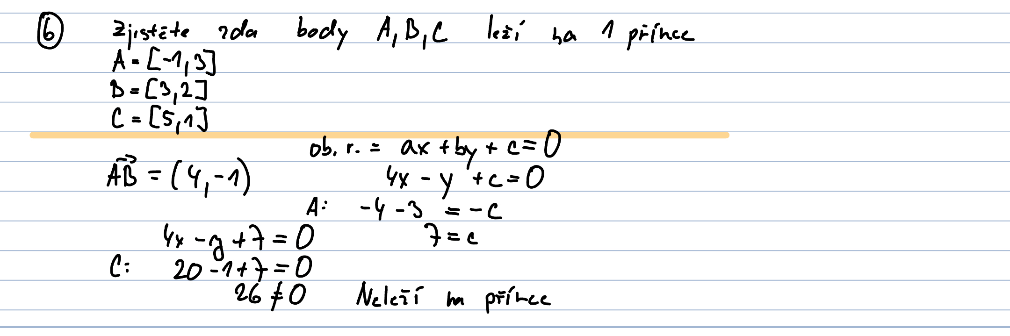 ⑥ Zjistěte zda body A, B, C leží na 1 přímce
A = [-1,3]
B = [3,2]
C = [5,1]
ob. r. = ax + by + c = 0
AB = (4,-1)
4x - y + c = 0
A: -4 - 3 = -c
4x - y + 7 = 0
7 = c
C: 20 - 1 + 7 = 0
26 ≠ 0 Neleží na přímce